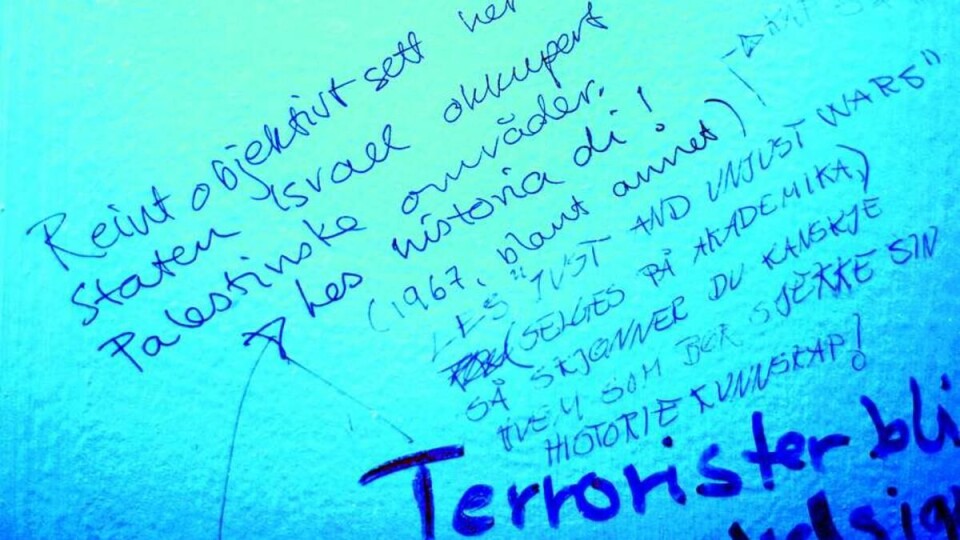 Reint objektivt sett her
Staten Israel okkupert
Palestinske områder.
Les historia di!
(1967, blant annet)
LES "JUST AND UNJUST WARS"
(SELGES PÅ AKADEMIKA,)
SÅ SKJØNNER DU KANSKJE
HVEM SOM BØR SJEKKE SIN
HISTORIE KUNNSKAP!
Terrorister bli